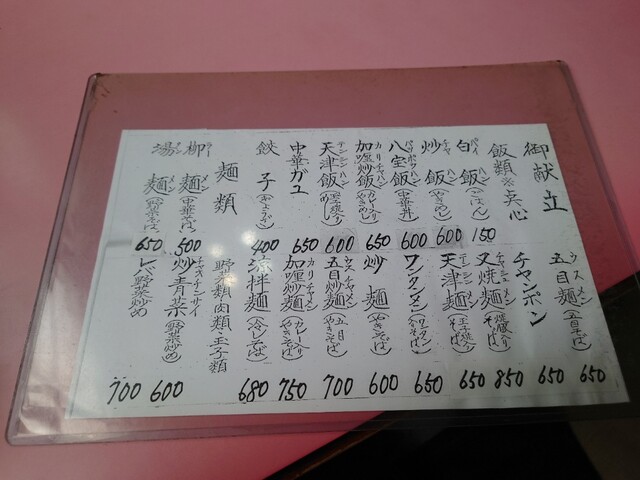 御献立
飯類 点心
白飯(ごはん) 150
炒飯(やきめし) 600
八宝飯(中華丼) 600
加哩炒飯(カレーやきめし) 650
天津飯 600
中華ガユ 650
餃子(ギョーザ) 400
麺類
柳麺(中華そば) 500
湯麺(野菜そば) 650
五目麺(五目そば) 650
チヤンポン 650
叉焼麺(焼豚そば) 850
天津麺 650
ワンタンメン 650
炒麺(やきそば) 600
五目炒麺(五目やきそば) 700
加哩炒麺(カレーやきそば) 750
涼拌麺(冷しそば) 680
野菜類 肉類・玉子類
炒青菜(野菜炒め) 600
レバ野菜炒め 700